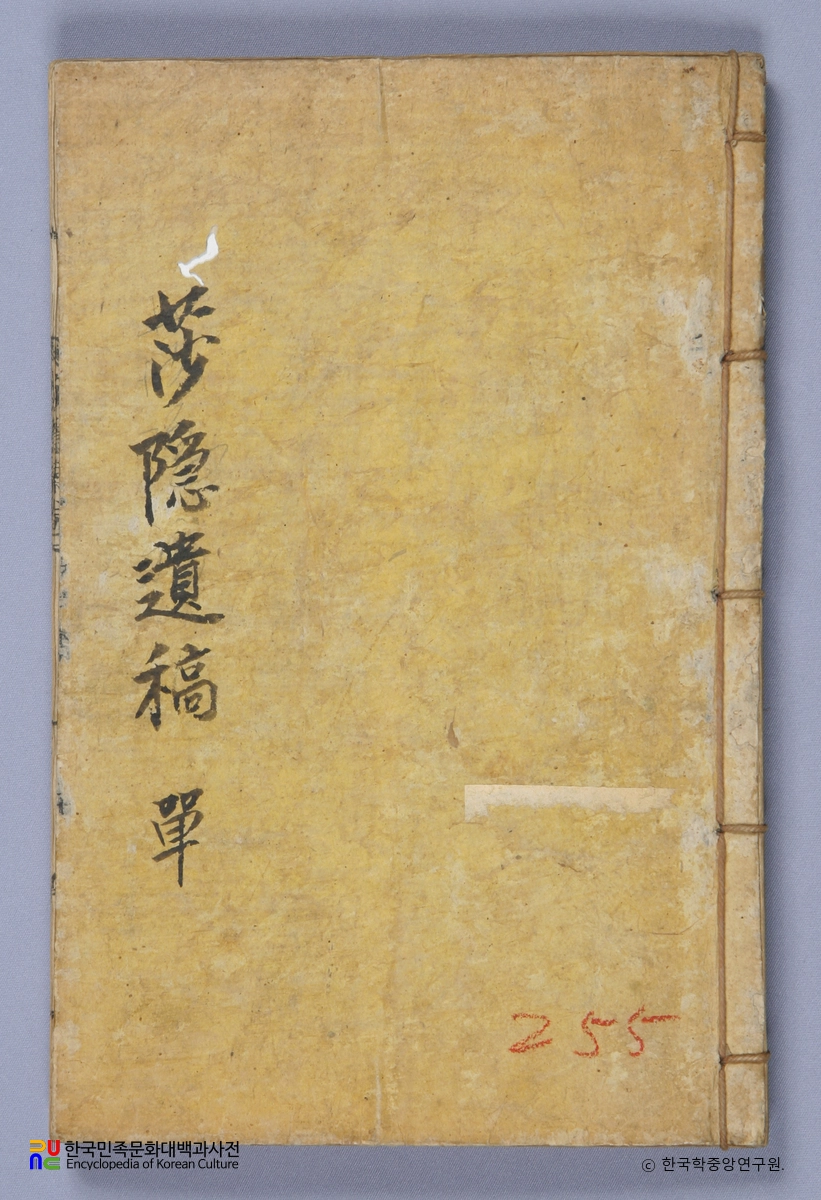 莎隱遺稿 單
255
한국민족문화대백과사전
Encyclopedia of Korean Culture
ⓒ 한국학중앙연구원.